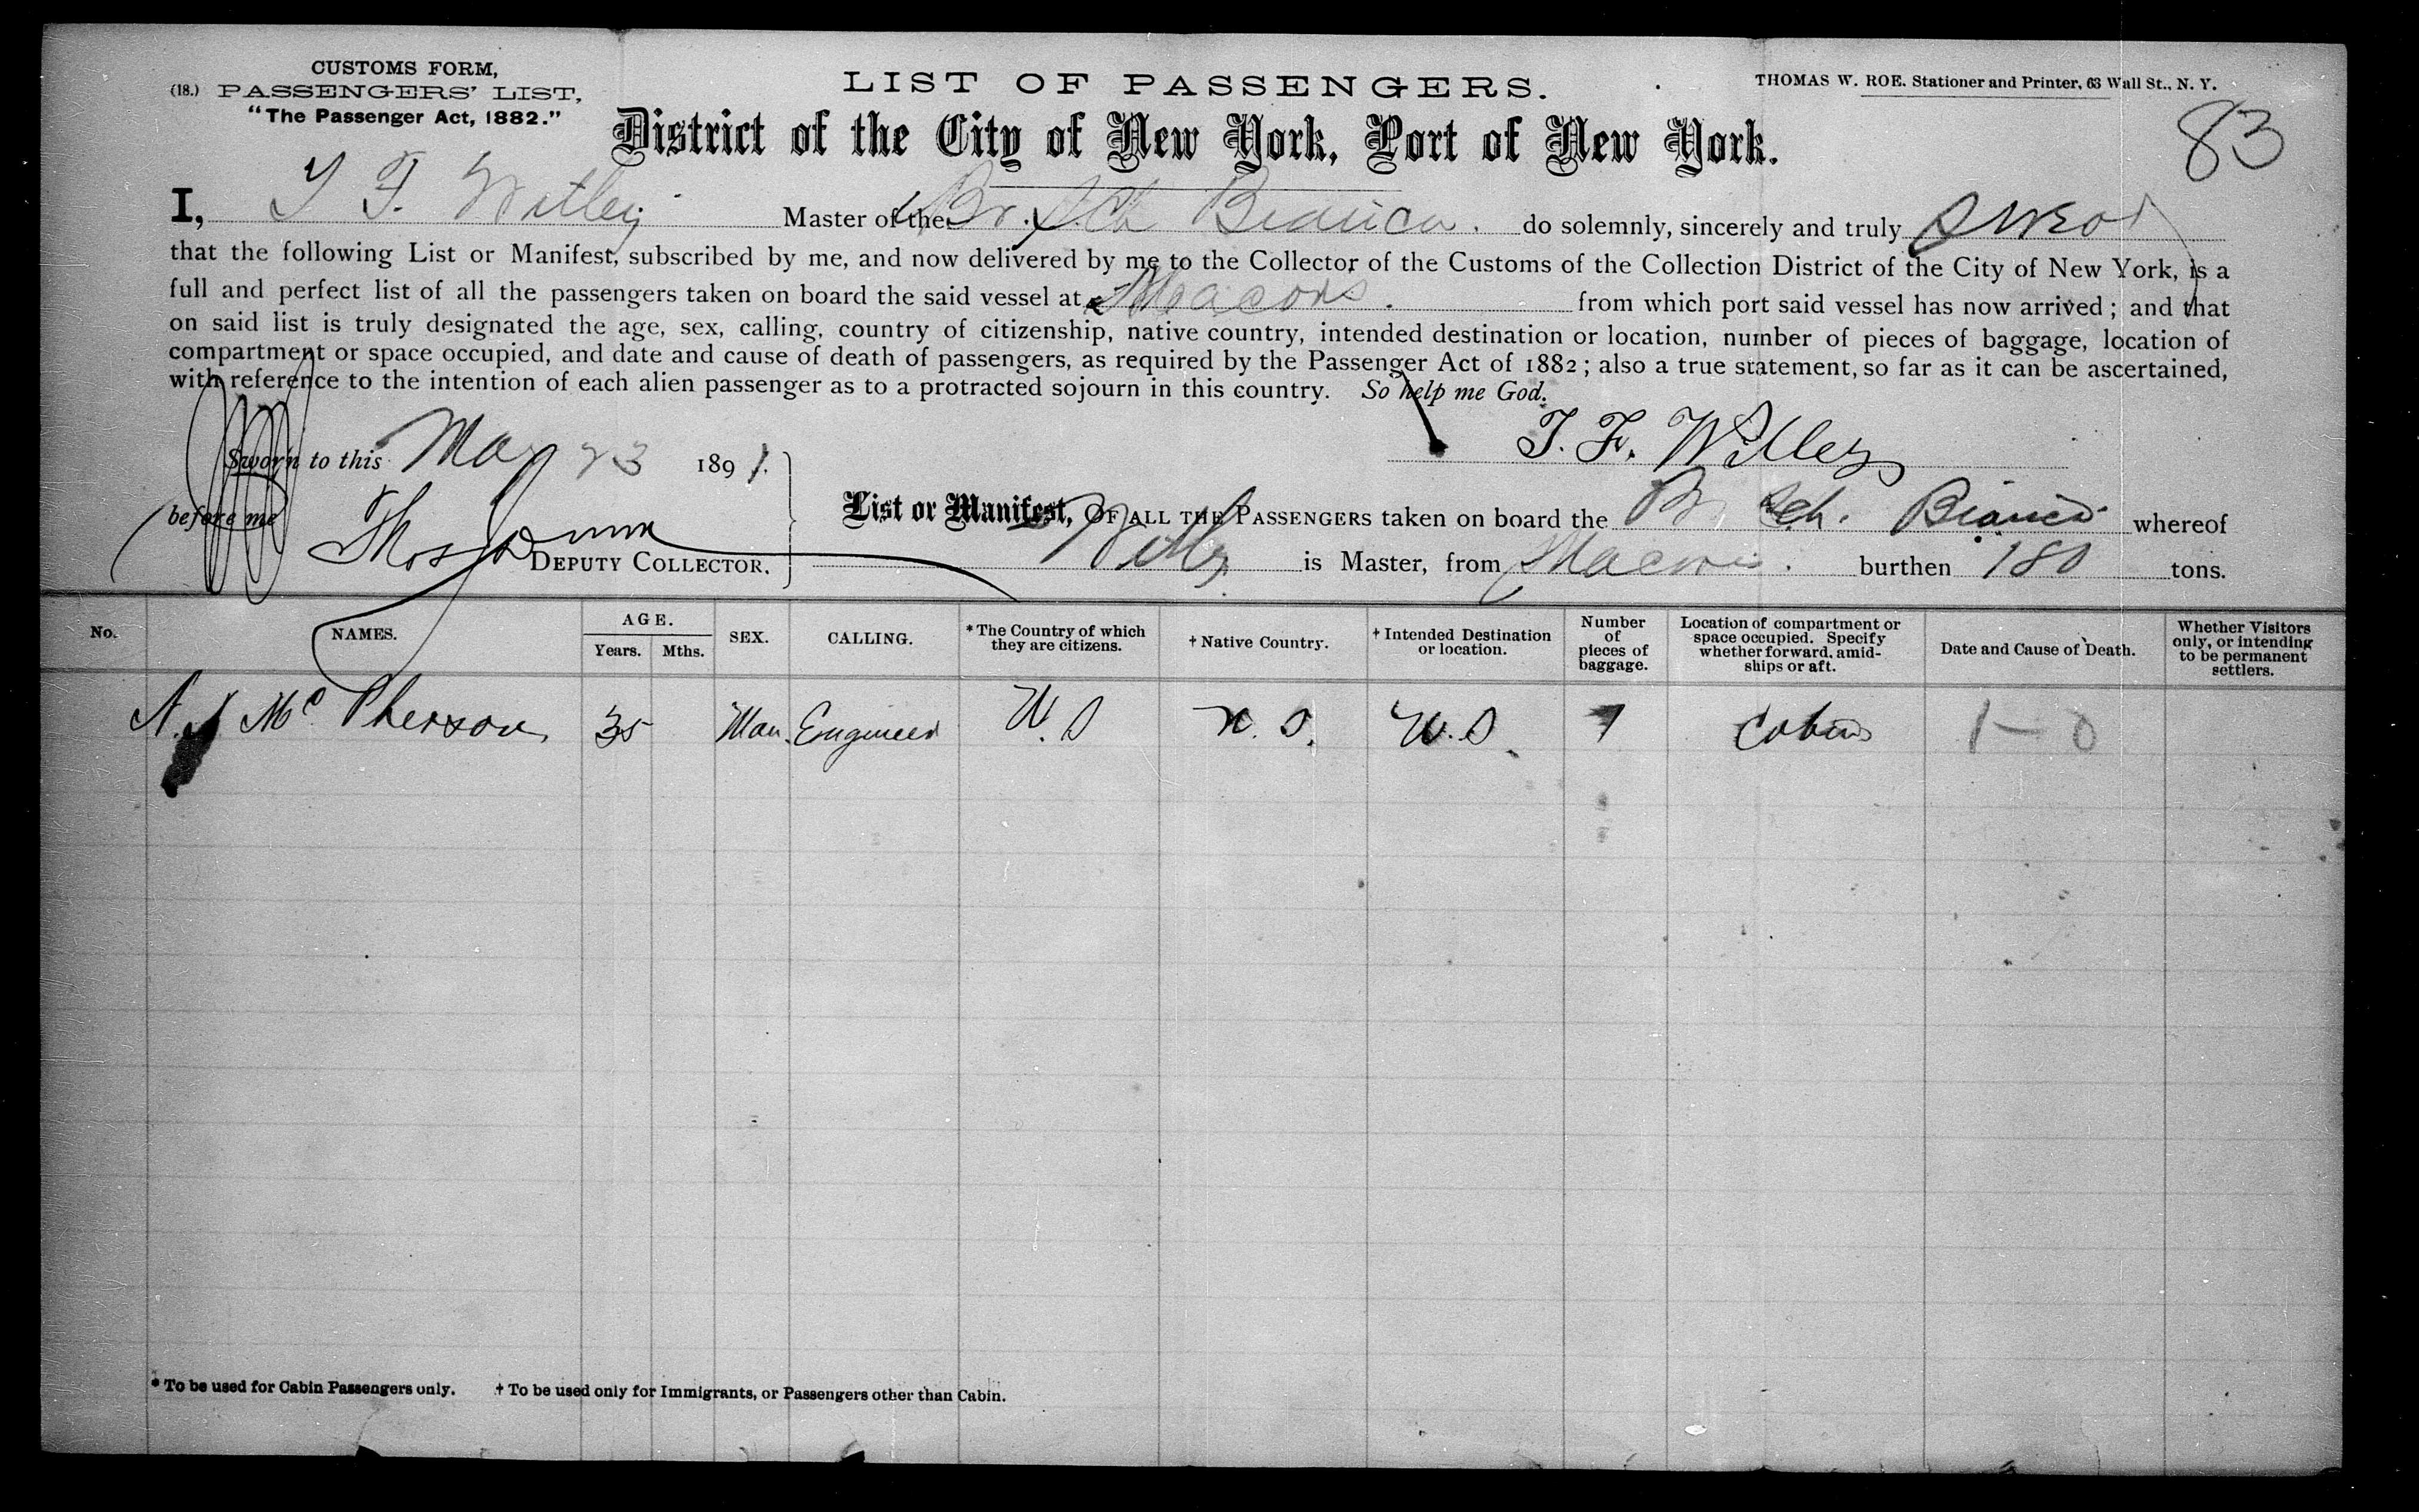 CUSTOMS FORM,
(18.) PASSENGERS' LIST,
"The Passenger Act, 1882."
LIST OF PASSENGERS.
THOMAS W. ROE. Stationer and Printer, 63 Wall St., N. Y.
District of the City of New York, Port of New York.
83
I, T. F. Willey Master of the Br. Sch Bianca. do solemnly, sincerely and truly swear
that the following List or Manifest, subscribed by me, and now delivered by me to the Collector of the Customs of the Collection District of the City of New York, is a
full and perfect list of all the passengers taken on board the said vessel at Macoris. from which port said vessel has now arrived; and that
on said list is truly designated the age, sex, calling, country of citizenship, native country, intended destination or location, number of pieces of baggage, location of
compartment or space occupied, and date and cause of death of passengers, as required by the Passenger Act of 1882; also a true statement, so far as it can be ascertained,
with reference to the intention of each alien passenger as to a protracted sojourn in this country. So help me God.
T. F. Willey
Sworn to this May 23 1891.
before me Thos Dunn
DEPUTY COLLECTOR.
List or Manifest, OF ALL THE PASSENGERS taken on board the Br Sch. Bianca whereof
Willey is Master, from Macoris. burthen 180 tons.
No. NAMES. AGE. Years. Mths. SEX. CALLING. * The Country of which they are citizens. † Native Country. † Intended Destination or location. Number of pieces of baggage. Location of compartment or space occupied. Specify whether forward, amidships or aft. Date and Cause of Death. Whether Visitors only, or intending to be permanent settlers.
Mc Pherson 35 Man. Engineer N. S. 1 Cabin 1-0
* To be used for Cabin Passengers only. † To be used only for Immigrants, or Passengers other than Cabin.